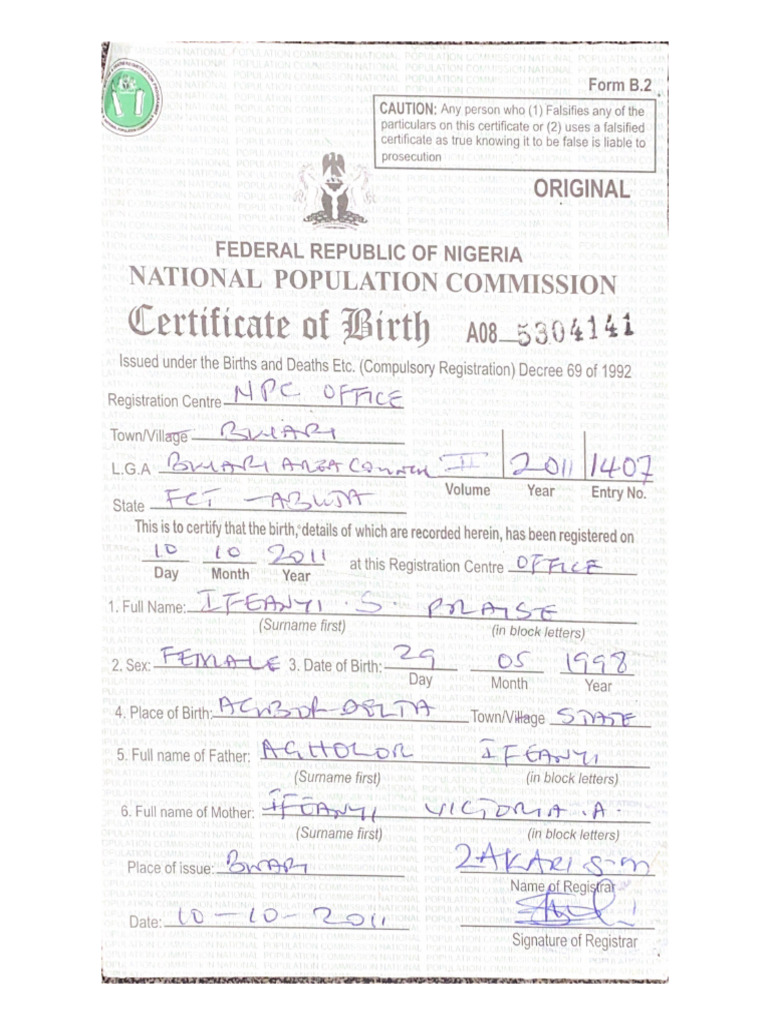 Form B.2
CAUTION: Any person who (1) Falsifies any of the
particulars on this certificate or (2) uses a falsified
certificate as true knowing it to be false is liable to
prosecution
ORIGINAL
FEDERAL REPUBLIC OF NIGERIA
NATIONAL POPULATION COMMISSION
Certificate of Birth A08 5304141
Issued under the Births and Deaths Etc. (Compulsory Registration) Decree 69 of 1992
Registration Centre NPC OFFICE
Town/Village BWARI
L.G.A BWARI AREA COUNCIL II 2011 1407
Volume Year Entry No.
State FCT - ABUJA
This is to certify that the birth, details of which are recorded herein, has been registered on
10 10 2011 at this Registration Centre OFFICE
Day Month Year
1. Full Name: IFEANYI .S. PRAISE
(Surname first) (in block letters)
2. Sex: FEMALE 3. Date of Birth: 29 05 1998
Day Month Year
4. Place of Birth: AGBOR-DELTA Town/Village STATE
5. Full name of Father: AGHOLOR IFEANYI
(Surname first) (in block letters)
6. Full name of Mother: IFEANYI VICTORIA .A.
(Surname first) (in block letters)
Place of issue: BWARI ZAKARI S-M
Name of Registrar
Date: 10-10-2011
Signature of Registrar